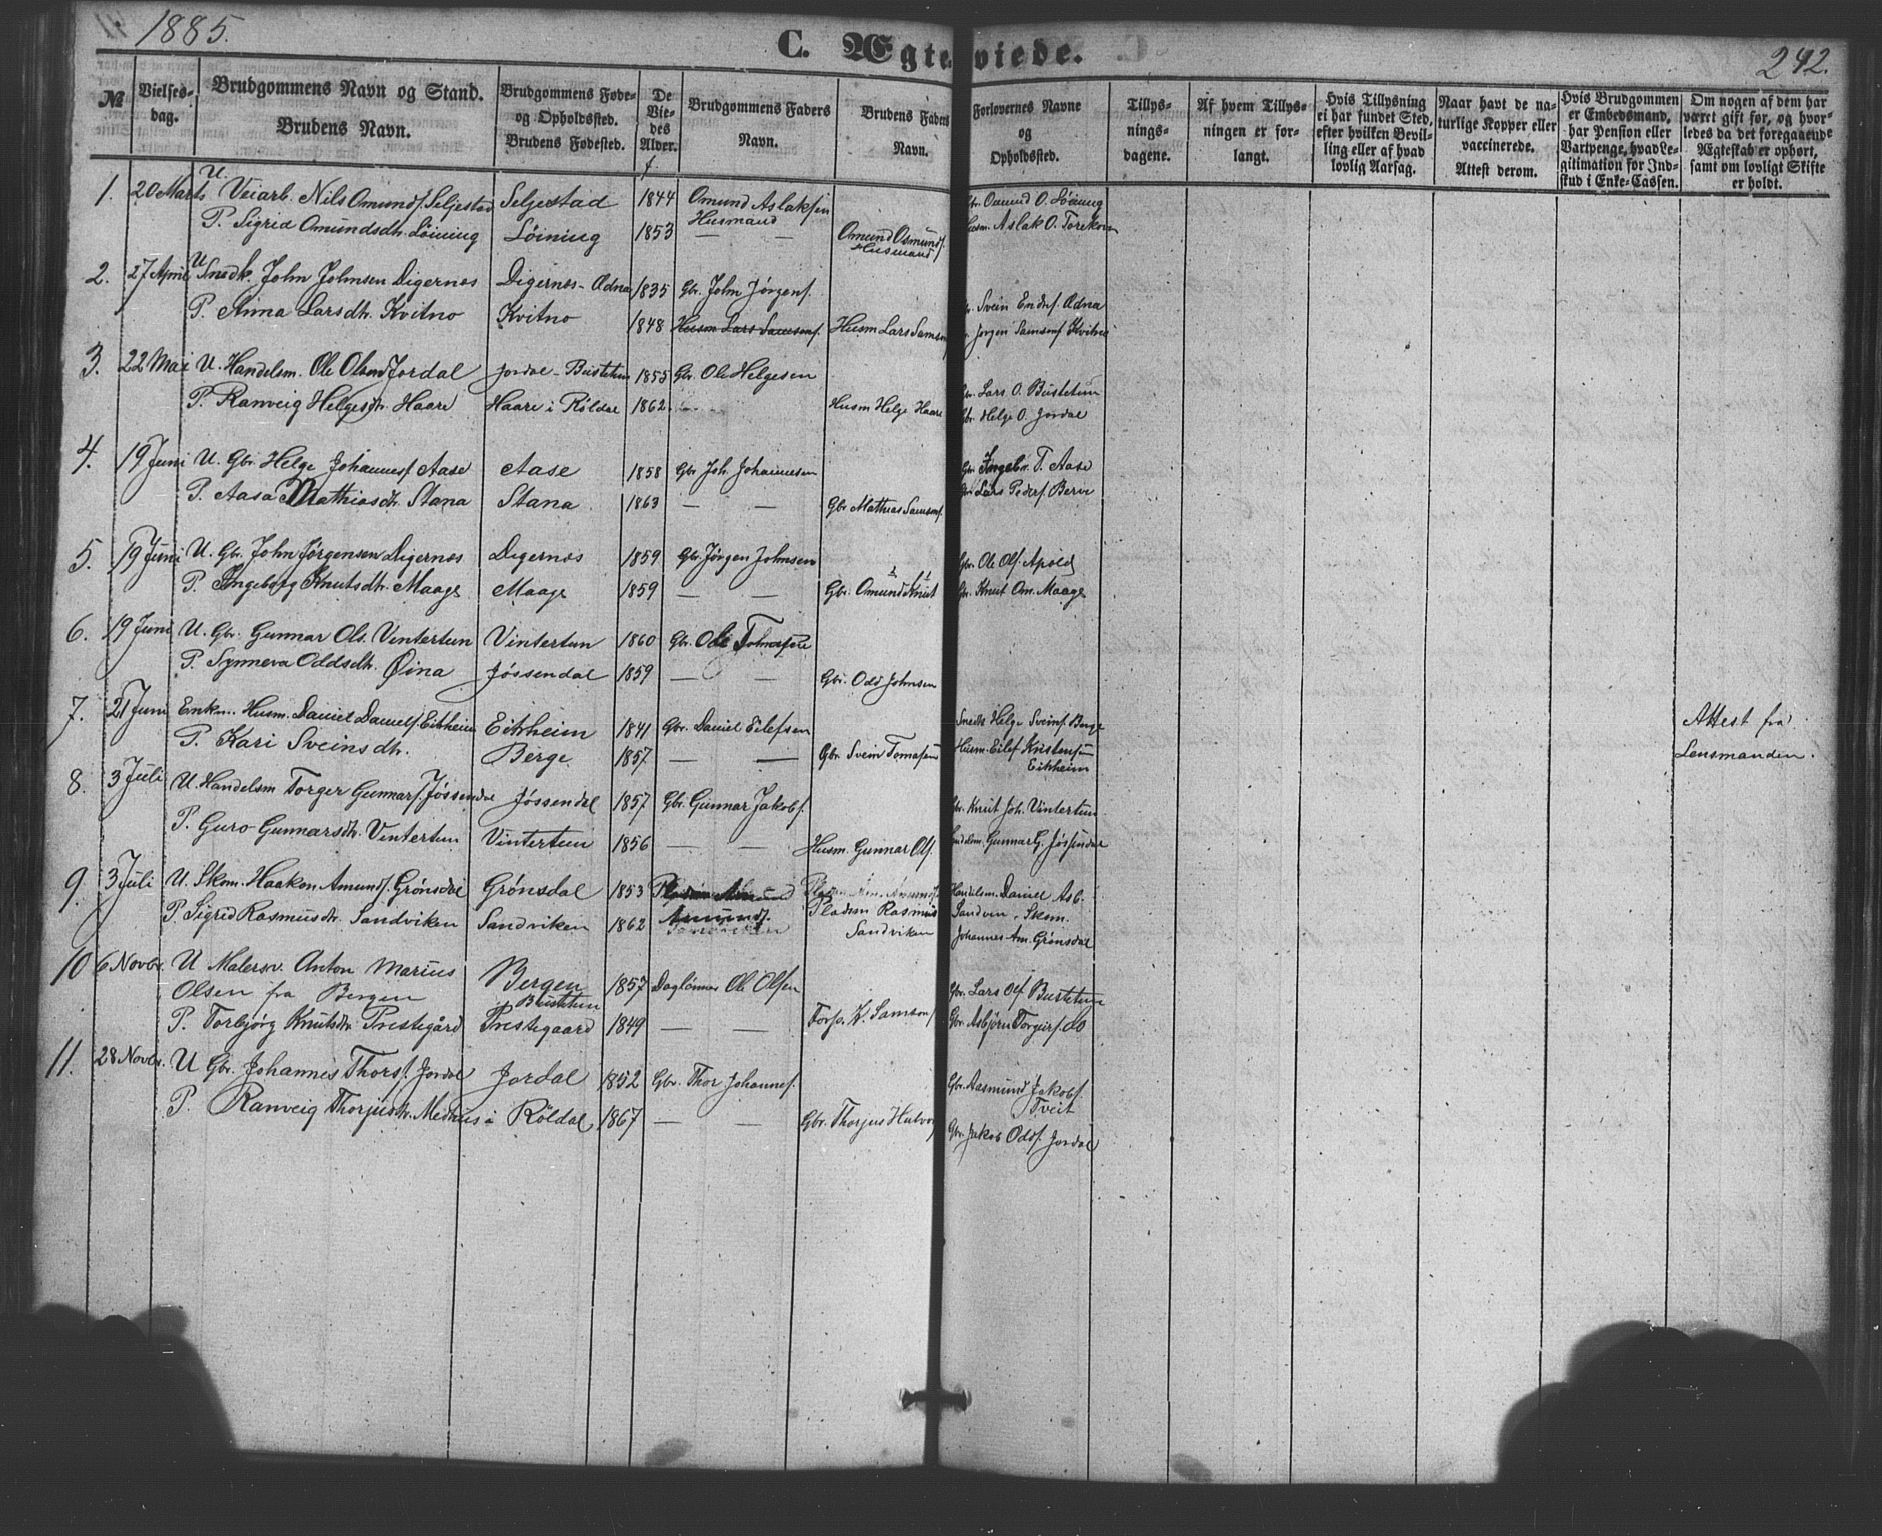 1885.
C. Ægteviede.
242.
№
Vielses-
dag.
Brudgommens Navn og Stand.
Brudens Navn.
Brudgommens Føde-
og Opholdssted.
Brudens Fødested.
De
Vie-
des
Alder.
Brudgommens Faders
Navn.
Brudens Faders
Navn.
Forlovernes Navne
og
Opholdssted.
Tillys-
nings-
dagene.
Af hvem Tillys-
ningen er for-
langt.
Hvis Tillysning
ei har fundet Sted,
efter hvilken Bevil-
ling eller af hvad
lovlig Aarsag.
Naar havt de na-
turlige Kopper eller
vaccinerede.
Attest derom.
Hvis Brudgommen
er Embedsmand,
har Pension eller
Vartpenge, hvad Le-
gitimation for Ind-
skud i Enke-Cassen.
Om nogen af dem har
været gift før, og hvor-
ledes da det foregaaende
Ægteskab er ophørt,
samt om lovligt Skifte
er holdt.
1. 20 Marts U. Veiarb. Nils Omunds. Seljestad Seljestad 1844 Omund Aslaksen Gbr. Omund O. Löining
Husmand
P. Sigrid Omundsdtr. Löining Löining 1853 — — Omund Osmunds. Husm. Aslak O.
Husmand
2. 27 April U Snedk. John Johnsen Digernes Digernes - Ædna 1835 Gbr. John Jörgens. Svein Endres. Ædna
P. Anna Larsdtr. Kvitno Kvitno 1848 Husm Lars Samsons. Husm Lars Samsons. Jörgen Samsons. Kvitno
3. 22 Mai U. Handelsm. Ole Olsen Jordal Jordal - Bustetun 1855 Gbr. Ole Helgesen Gbr. Lars O. Bustetun
P. Ranveig Helgesdtr. Haare Haare i Röldal 1862 Husm Helge Haare Gbr. Helge O. Jordal
4. 19 Juni U. Gbr. Helge Johannes. Aase Aase 1858 Gbr. Joh. Johannesen Gbr. Ingebr. T. Aase
P. Aasa Mathiasdtr. Stana Stana 1863 — — Gbr Mathias Samsons. Gbr Lars Peders. Berve
5. 19 Juni U. Gbr. John Jörgensen Digernes Digernes 1859 Gbr. Jörgen Johnsen Gbr. Ole Ols. Apold
P. Ingeborg Knutsdtr. Maage Maage 1859 — — Gbr. Omund Knut Gbr. Knut Om. Maage
6. 19 Juni U. Gbr. Gunnar Ols. Vintertun Vintertun 1860 Gbr. Ole
P. Synneva Oddsdtr. Øina Jössendal 1859 — — Gbr. Odd Johnsen
7. 21 Juni Enkm. Husm. Daniel Daniels. Eitrheim Eitrheim 1841 Gbr. Daniel Eilefsen Snedk Helge Sveins. Berge Attest fra
P. Kari Sveinsdtr. Berge 1857 — — Gbr Svein Tomasen Husm. Eilef Kristensen Lensmanden.
Eitrheim
8. 3 Juli U. Handelsm Torger Gunnars. Jössendal Jössendal 1857 Gbr. Gunnar Jakobs. Gbr. Knut Joh. Vintertun
P. Guro Gunnarsdtr. Vintertun Vintertun 1856 — — Husm. Gunnar Ols. Handelsm. Gunnar G. Jössendal
9. 3 Juli U. Skom. Haakon Amunds. Grönsdal Grönsdal 1853 Pladsm Amund Handelsm. Daniel Asb.
P. Sigrid Rasmusdtr. Sandviken Sandviken 1862 Amunds. Pladsm Rasmus Sandven. Skom.
Sandviken Sandviken Johannes Am. Grönsdal
10 6 Novbr. U Malersv. Anton Marius Bergen 1857 Daglönner Ole Olsen Gbr. Lars Ols. Bustetun
Olsen fra Bergen Bustetun
P. Torbjörg Knutsdtr. Prestegård Prestegaard 1849 — — Forp. K. Samsons. Gbr. Asbjörn Torgeirs. do
11. 28 Novbr. U Gbr. Johannes Thors. Jordal Jordal 1852 Gbr. Thor Johannes. Gbr. Aasmund Jakobs.
Tveit
P. Ranveig Thorjusdtr. Medhus i Röldal 1867 — — Gbr. Thorjus Halvors. Gbr. Jakob Odds. Jordal